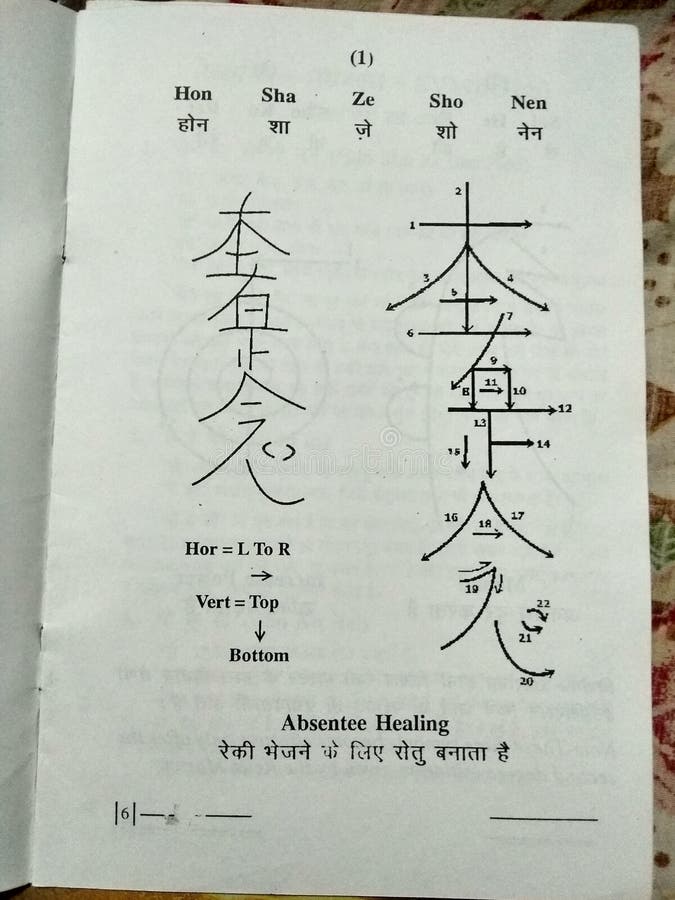 (1)
Hon Sha Ze Sho Nen
होन शा ज़े शो नेन
2
1
3 4
5
7
6
9
8 11 10
12
13
14
15
16 17
18
19
22
21
20
Hor = L To R
Vert = Top
Bottom
Absentee Healing
रेकी भेजने के लिए सेतु बनाता है
|6|
dreamstime